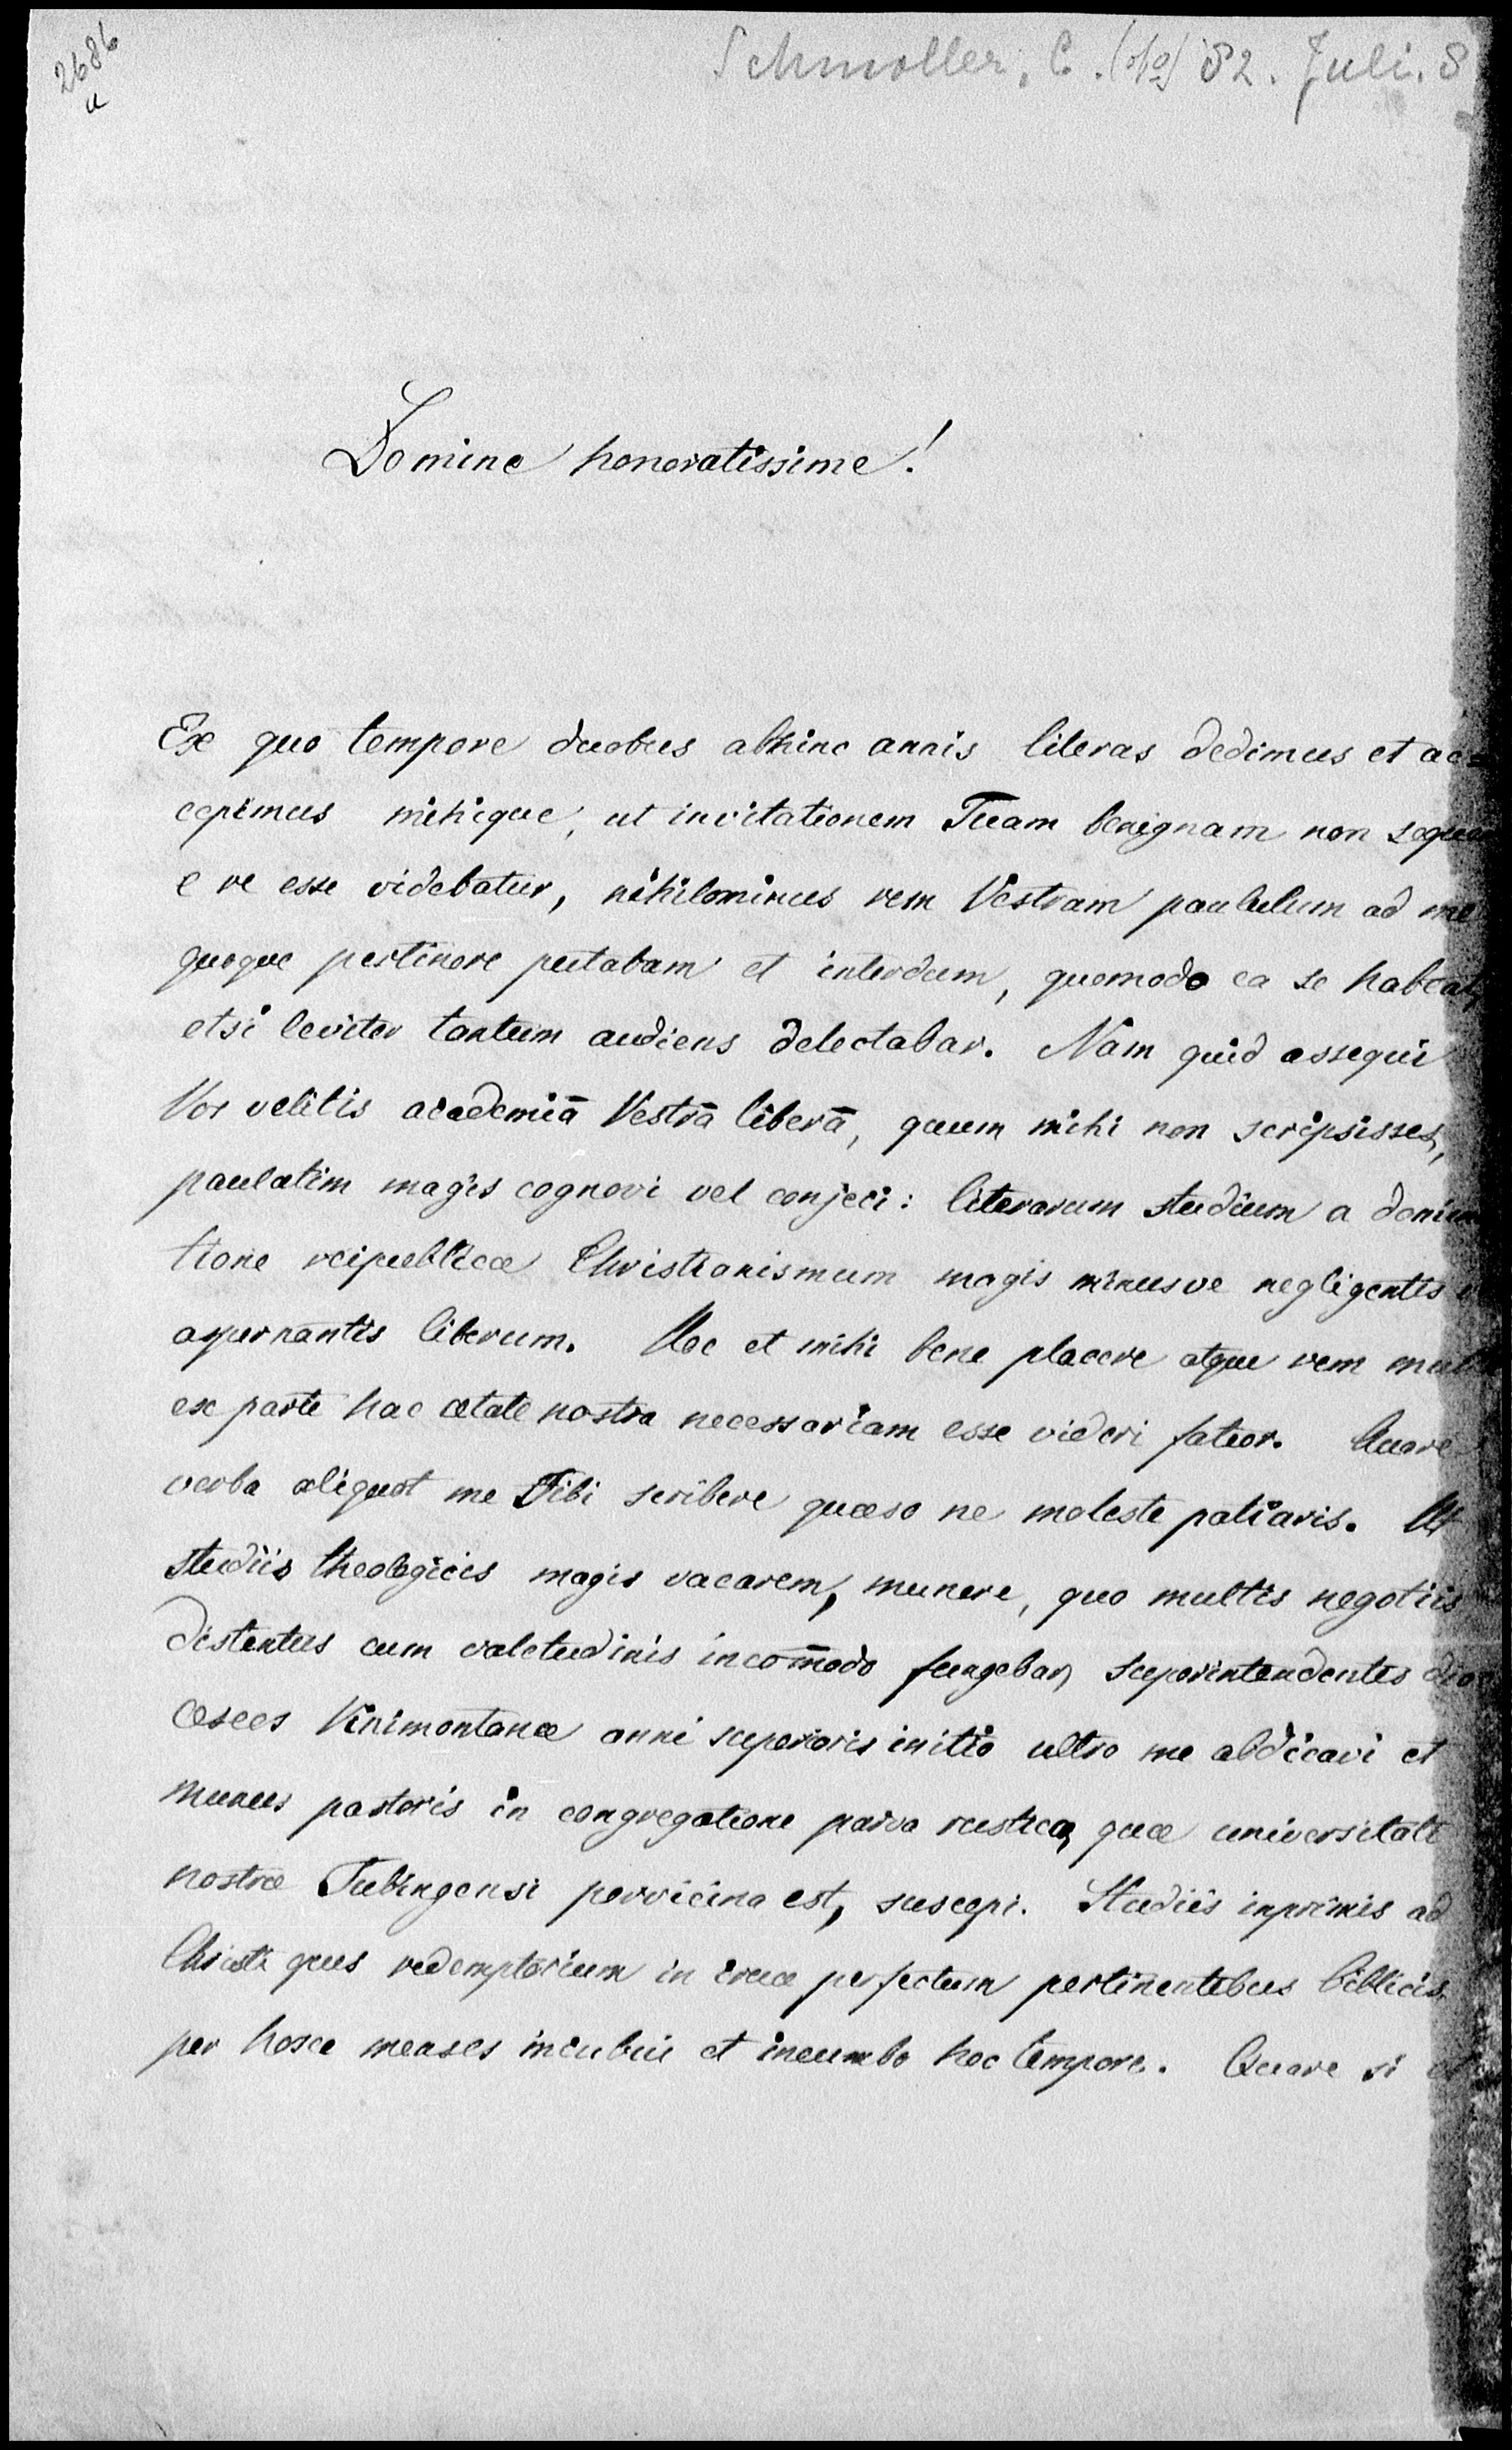 2686
a
Schmoller, C. 82. Juli. 8
Domine honoratissime!
Ex quo tempore duobus abhinc annis literas dedimus et ac=
cepimus mihique, ut invitationem Tuam benignam non sequar
e re esse videbatur, nihilominus rem Vestram paululum ad me
quoque pertinere putabam et interdum, quomodo ea se habeat,
etsi leviter tantum audiens delectabar. Nam quid assequi
Vos velitis academiā Vestrā liberā, quum mihi non scripsisses,
paulatim magis cognovi vel conjeci: literarum studium a domina
tione reipublicæ Christianismum magis minusve negligentis
aspernantis liberum. Hoc et mihi bene placere atque rem multa
ex parte hac ætate nostra necessariam esse videri fateor. Quare
verba aliquot me Tibi scribere quæso ne moleste patiaris. Ut
studiis theologicis magis vacarem, munere, quo multis negotiis
distentus cum valetudinis incom̄odo fungebar, superintendentis dioe
ceseos Vinimontanæ anni superioris initio ultro me abdicavi et
munus pastoris in congregatione parva rustica, quæ universitati
nostræ Tubingensi pervicina est, suscepi. Studiis inprimis ad
Christi opus redemptorium in cruce perfectum pertinentibus biblicis
per hosce menses incubui et incumbo hoc tempore. Quare si et